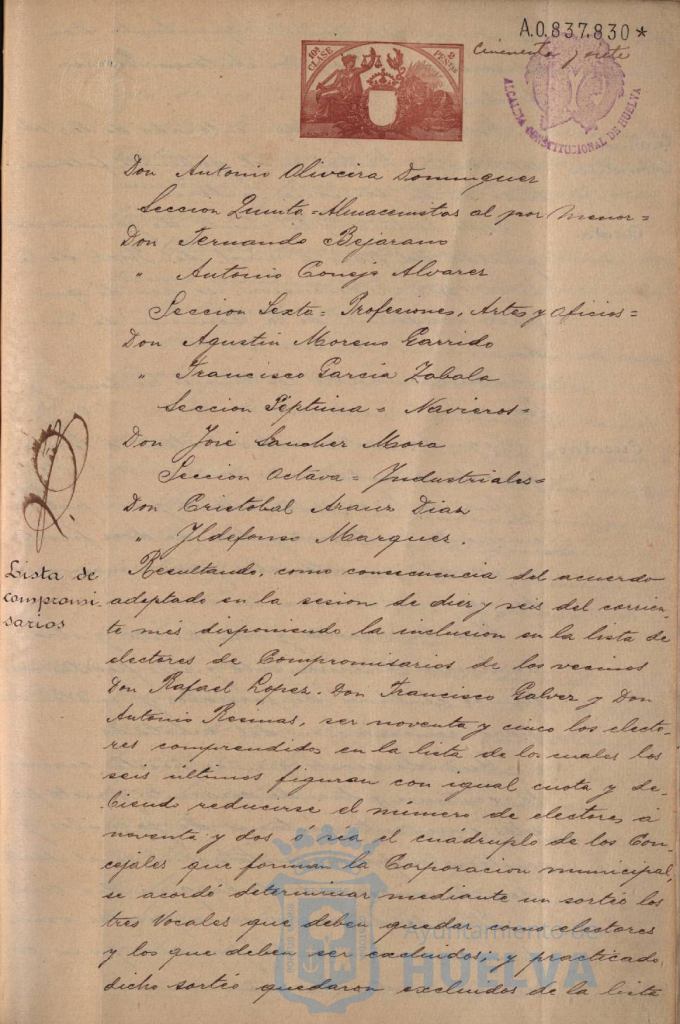 A.0.837.830*
Cincuenta y siete
10ª CLASE
2 PESETAS
ALCALDIA CONSTITUCIONAL DE HUELVA
Don Antonio Oliveira Dominguez
Seccion Quinta = Almacenistas al por Menor =
Don Fernando Bejarano
" Antonio Conejo Alvarez
Seccion Sexta = Profesiones, Artes y Oficios =
Don Agustin Moreno Garrido
" Francisco Garcia Zabala
Seccion Séptima = Navieros =
Don José Sanchez Mora
Seccion Octava = Industriales =
Don Cristobal Arauz Diaz
" Ildefonso Marquez.
Lista de
compromi-
sarios
Resultando, como consecuencia del acuerdo
adoptado en la sesion de diez y seis del corrien-
te mes disponiendo la inclusion en la lista de
electores de Compromisarios de los vecinos
Don Rafael Lopez. Don Francisco Galvez y Don
Antonio Resinas, ser noventa y cinco los electo-
res comprendidos en la lista de los cuales los
seis últimos figuran con igual cuota y de-
biendo reducirse el número de electores á
noventa y dos ó sea el cuádruplo de los Con-
cejales que forman la Corporacion municipal,
se acordó determinar mediante un sorteo los
tres Vocales que deben quedar como electores
y los que deben ser excluidos; y practicado
dicho sorteo quedaron excluidos de la lista
Ayuntamiento de
HUELVA